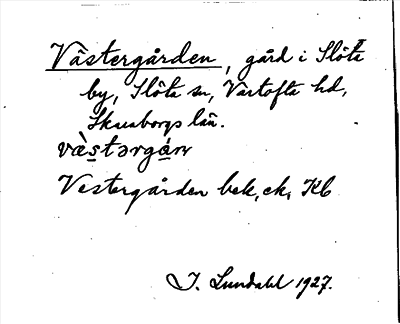 Västergården, gård i Slöta
by, Slöta sn, Vartofta hd,
Skaraborgs län.
Vestergården bek, ek, Kb
I. Lundahl 1927.